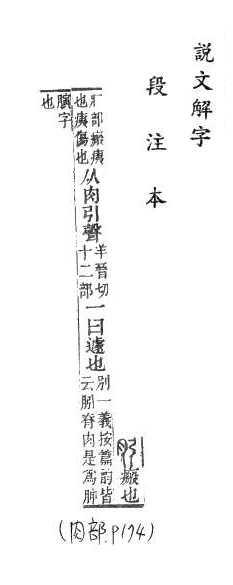 說文解字
段注本
瘢也
疒部瘢痍
也痍傷也
从肉引聲
羊晉切
十二部
一曰遽也
別一義按篇韵皆
云䏖脊肉是爲
字
也
(肉部.P174)